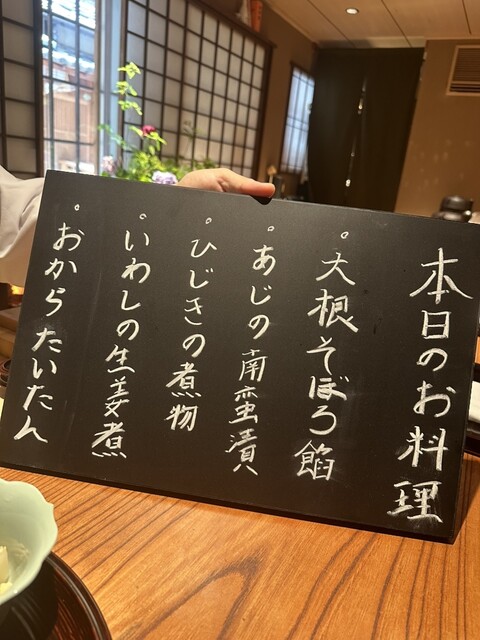 本日のお料理
°大根そぼろ餡
°あじの南蛮漬
°ひじきの煮物
°いわしの生姜煮
°おからたいたん